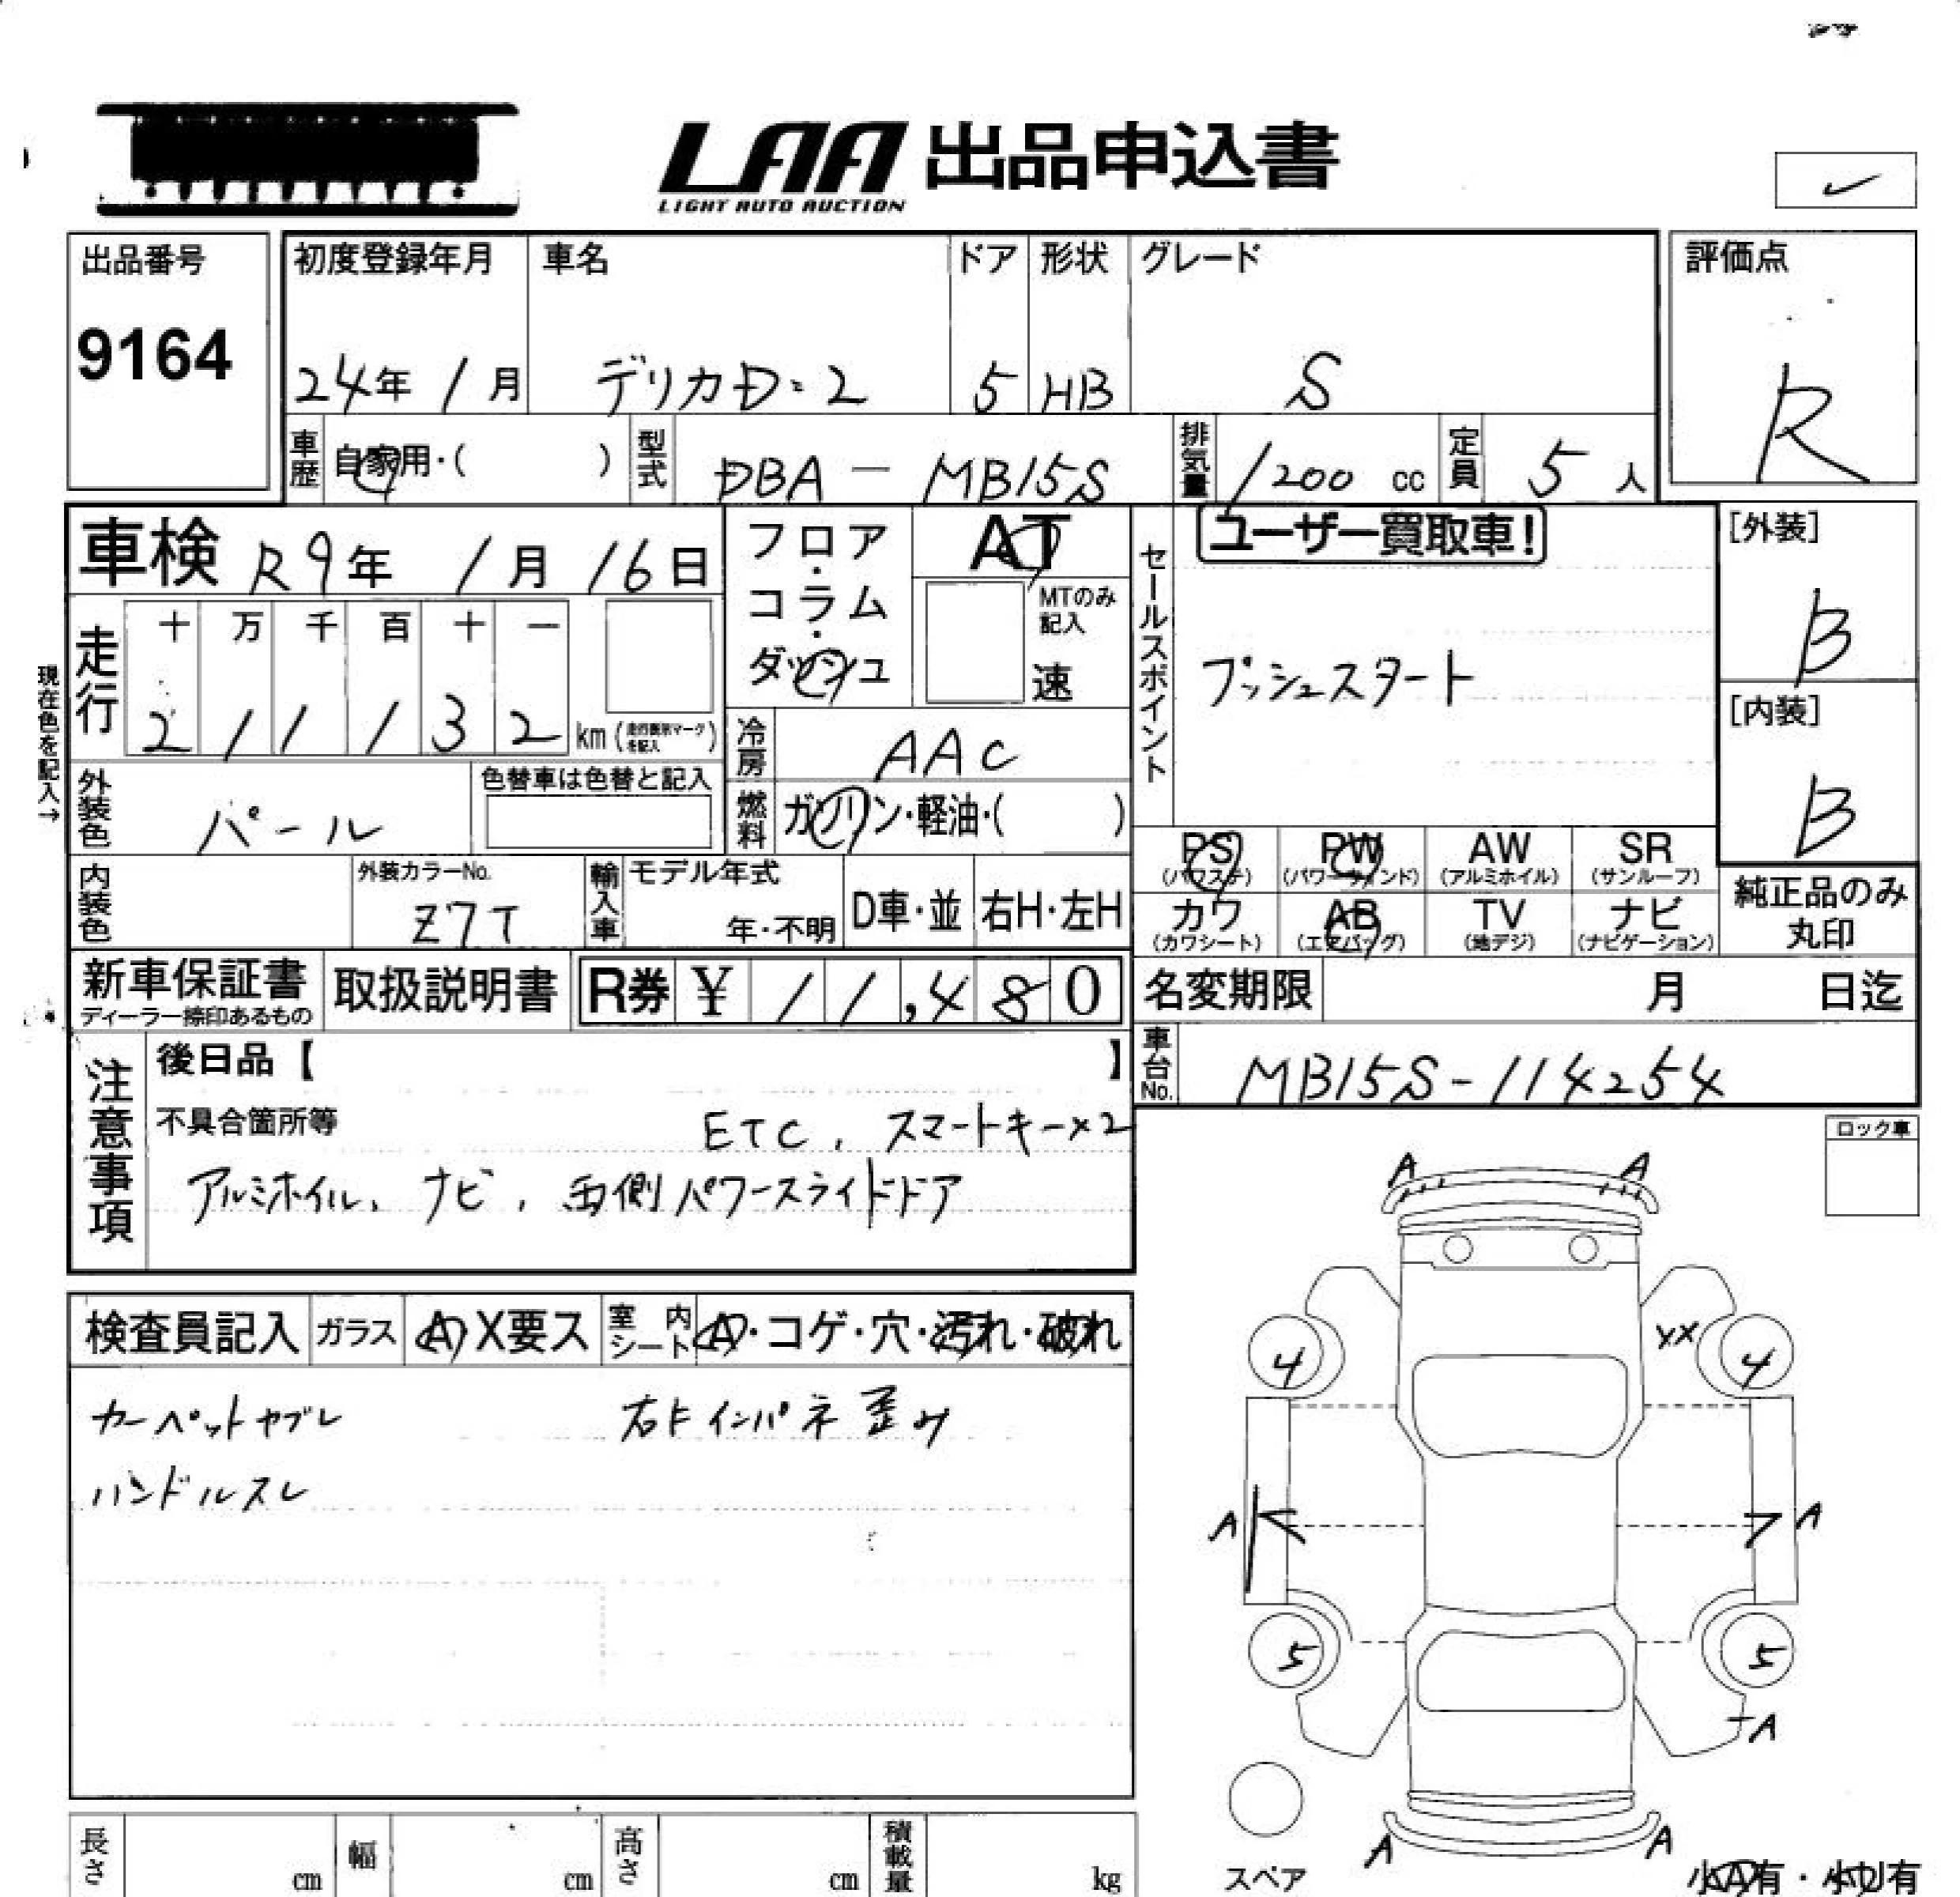 LAA 出品申込書
LIGHT AUTO AUCTION
出品番号
9164
初度登録年月
24年 1月
車名
デリカD:2
ドア
5
形状
HB
グレード
S
評価点
R
車歴
自家用・( )
型式
DBA - MB15S
排気量
1200 cc
定員
5 人
車検 R9年 1月 16日
フロア・コラム・ダッシュ
AT
MTのみ記入
速
セールスポイント
ユーザー買取車!
プッシュスタート
[外装]
B
[内装]
B
現在色を記入→
走行
十 万 千 百 十 一
2 1 1 1 3 2 km (走行無刻マークを記入)
冷房
AAC
外装色
パール
色替車は色替と記入
燃料
ガソリン・軽油・( )
PS (パワステ)
PW (パワーウインド)
AW (アルミホイル)
SR (サンルーフ)
カワ (カワシート)
AB (エアバッグ)
TV (地デジ)
ナビ (ナビゲーション)
純正品のみ丸印
内装色
外装カラーNo.
Z7T
輸入車
モデル年式
年・不明
D車・並
右H・左H
新車保証書
ディーラー捺印あるもの
取扱説明書
R券 ¥ 11,480
名変期限 月 日迄
車台No.
MB15S-114254
注意事項
後日品【 】
不具合箇所等
ETC, スマートキー×2
アルミホイル, ナビ, 両側パワースライドドア
ロック車
検査員記入
ガラス
A X要ス
室内シート
A・コゲ・穴・汚れ・破れ
カーペットヤブレ
右Fインパネ歪み
ハンドルスレ
A A
4 XX 4
A A
5 5
A
A A
スペア
小A有・小U有
長さ cm
幅 cm
高さ cm
積載量 kg